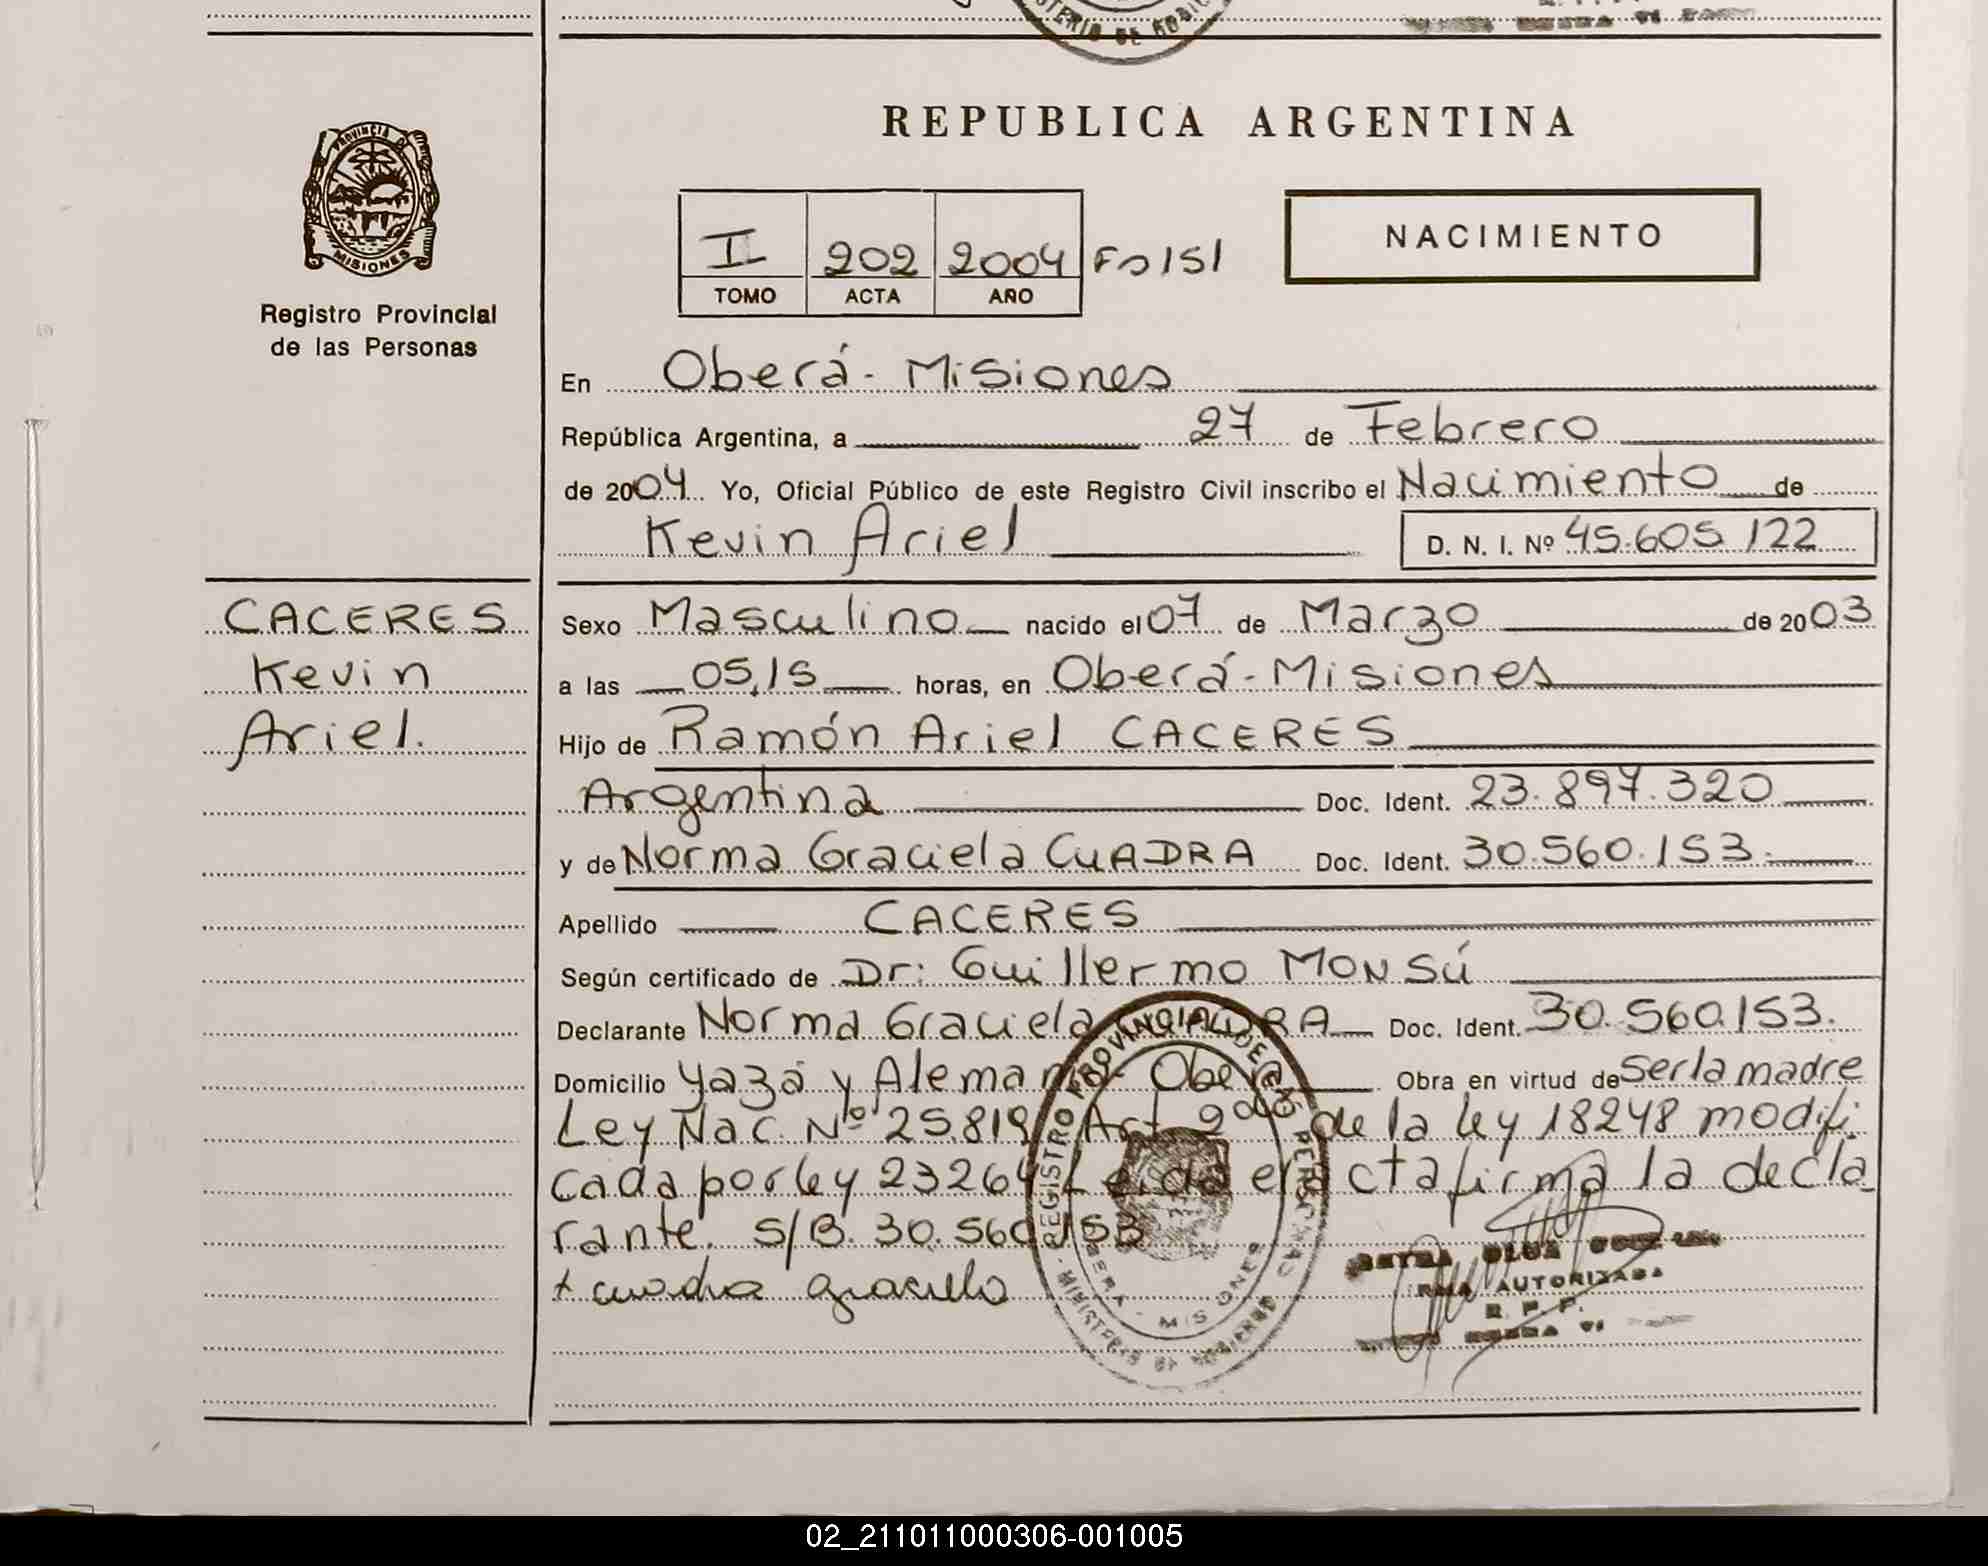 MINISTERIO DE GOBIE
REPUBLICA ARGENTINA
PROVINCIA DE
MISIONES
Registro Provincial
de las Personas
NACIMIENTO
I 202 2004 Fo 151
TOMO ACTA AÑO
En Oberá - Misiones
República Argentina, a 27 de Febrero
de 2004 Yo, Oficial Público de este Registro Civil inscribo el Nacimiento de
Kevin Ariel D. N. I. Nº 45.605.122
CACERES
Kevin
Ariel.
Sexo Masculino nacido el 07 de Marzo de 2003
a las 05,15 horas, en Oberá - Misiones
Hijo de Ramón Ariel CACERES
Argentina Doc. Ident. 23.897.320
y de Norma Graciela CUADRA Doc. Ident. 30.560.153.
Apellido CACERES
Según certificado de Dr: Guillermo MONSÚ
Declarante Norma Graciela CUADRA Doc. Ident. 30.560.153.
Domicilio Yazá y Alemania - Oberá Obra en virtud de Ser la madre
Ley Nac. Nº 25.819 Art 2do de la ley 18248 modifi
cada por ley 23264 Leida el acta firma la decla
rante. S/B. 30.560.153
+ cuadra graciela
REGISTRO PROVINCIAL DE LAS PERSONAS
OBERA - MISIONES
MINISTERIO DE GOBIERNO
OLGA
FIRMA AUTORIZADA
R. P. P.
02_211011000306-001005